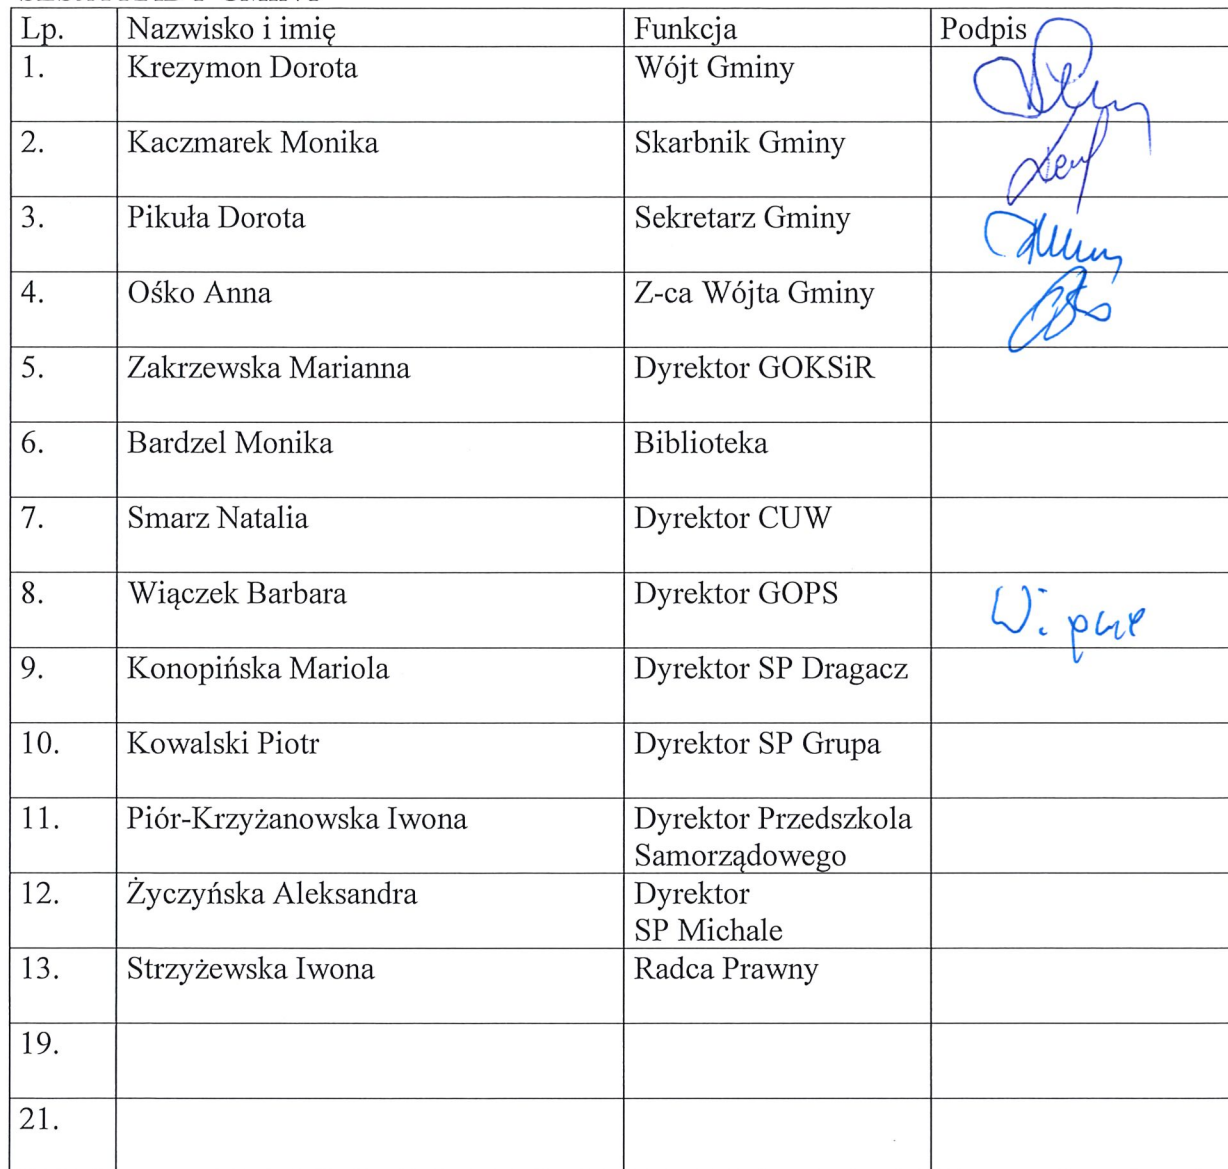 Lp. Nazwisko i imię Funkcja Podpis
1. Krezymon Dorota Wójt Gminy
2. Kaczmarek Monika Skarbnik Gminy
3. Pikuła Dorota Sekretarz Gminy
4. Ośko Anna Z-ca Wójta Gminy
5. Zakrzewska Marianna Dyrektor GOKSiR
6. Bardzel Monika Biblioteka
7. Smarz Natalia Dyrektor CUW
8. Wiączek Barbara Dyrektor GOPS
9. Konopińska Mariola Dyrektor SP Dragacz
10. Kowalski Piotr Dyrektor SP Grupa
11. Piór-Krzyżanowska Iwona Dyrektor Przedszkola
Samorządowego
12. Życzyńska Aleksandra Dyrektor
SP Michale
13. Strzyżewska Iwona Radca Prawny
19.
21.